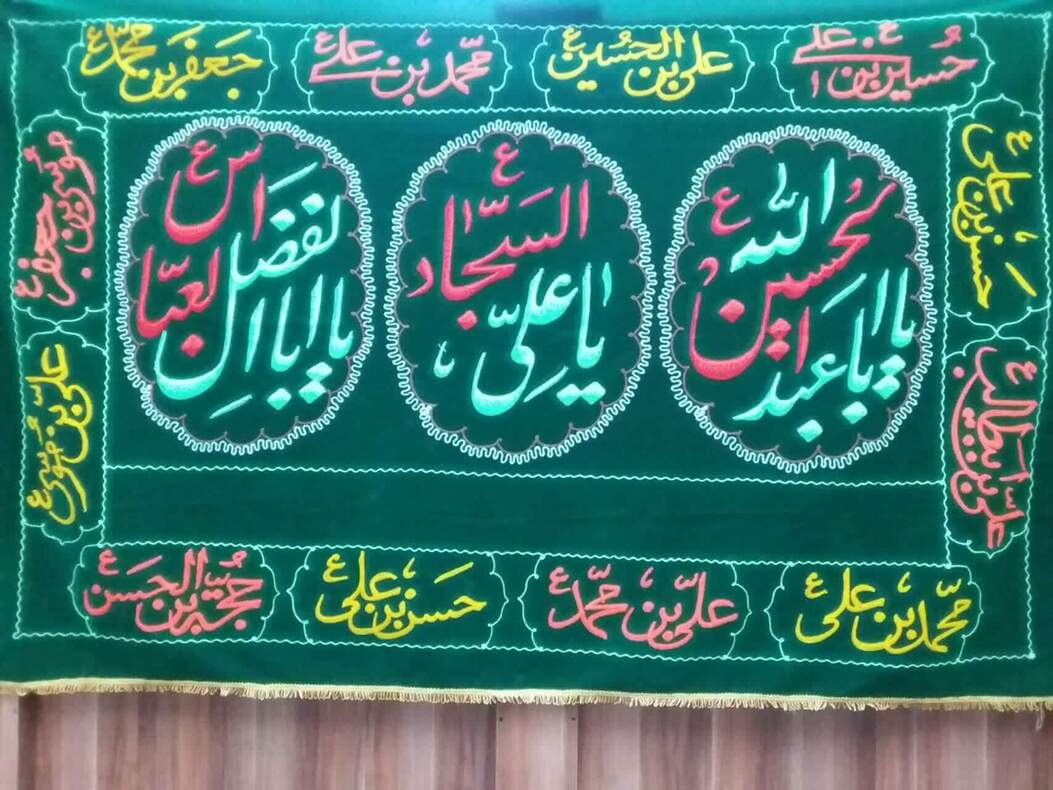 حسین بن علی ع
علی بن الحسین ع
محمد بن علی ع
جعفر بن محمد ع
حسن بن علی ع
علی بن ابیطالب ع
یا ابا عبد الله الحسین ع
یا علی السجاد ع
یا ابا الفضل العباس ع
موسی بن جعفر ع
علی بن موسی ع
محمد بن علی ع
علی بن محمد ع
حسن بن علی ع
حجة بن الحسن ع